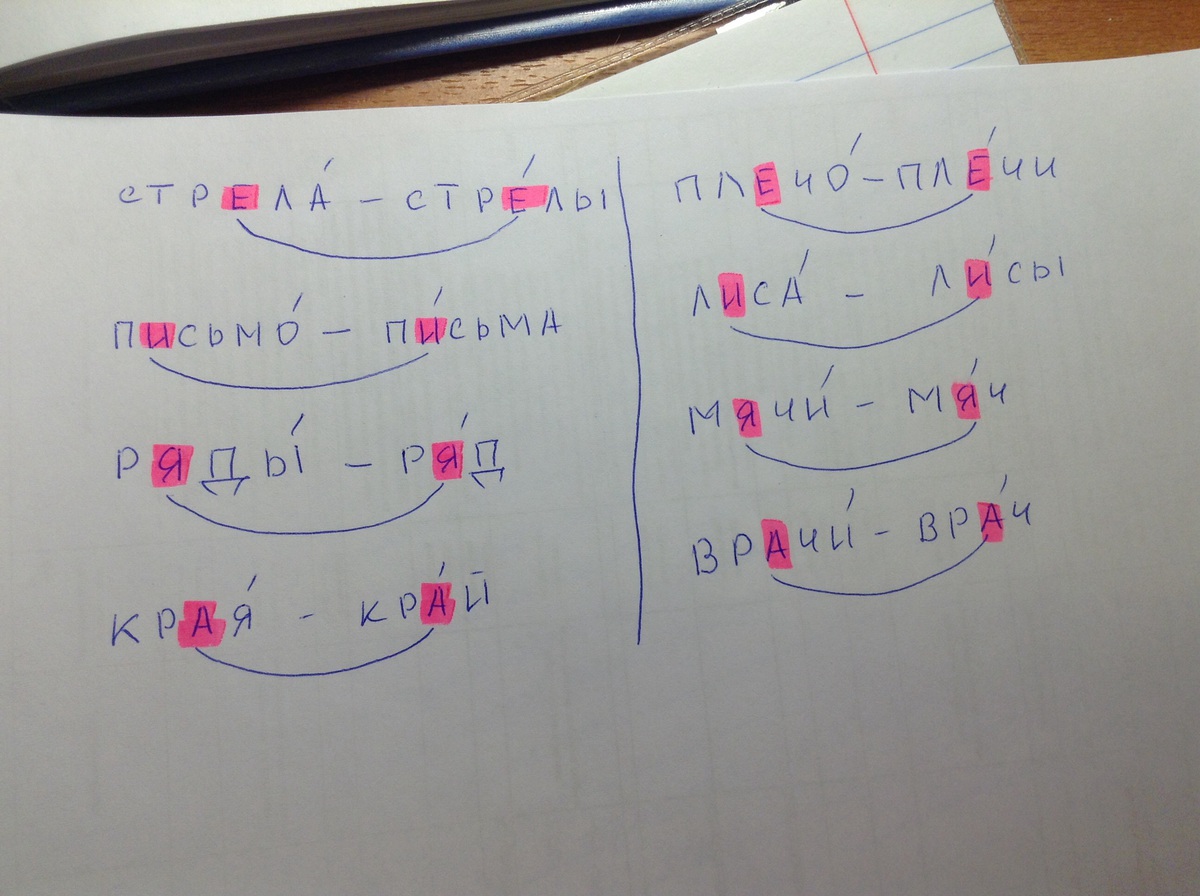 СТРЕЛА́ – СТРЕ́ЛЫ
ПИСЬМО́ – ПИ́СЬМА
РЯДЫ́ – РЯ́Д
КРАЯ́ - КРА́Й
ПЛЕЧО́ – ПЛЕ́ЧИ
ЛИСА́ – ЛИ́СЫ
МЯЧИ́ – МЯ́Ч
ВРАЧИ́ – ВРА́Ч